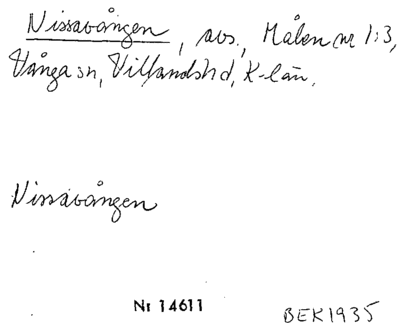 Nissavången, avs., Målen nr 1:3,
Vånga sn, Villands hd, K-län.
Nissavången
Nr 14611
BEK 1935